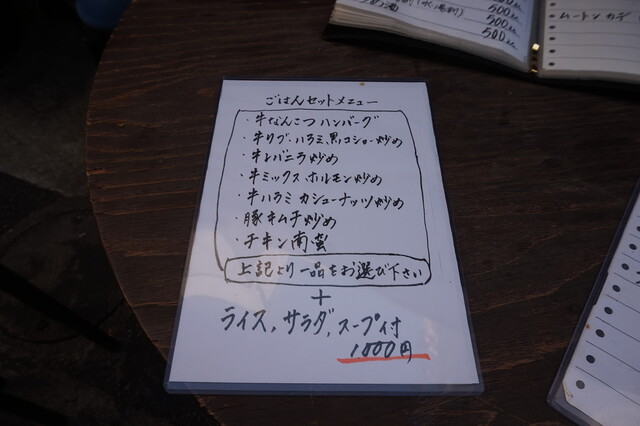 ごはんセットメニュー
・牛なんこつハンバーグ
・牛リブ・ハラミ、黒コショー炒め
・牛レバニラ炒め
・牛ミックス、ホルモン炒め
・牛ハラミカシューナッツ炒め
・豚キムチ炒め
・チキン南蛮
上記より一品をお選び下さい
+
ライス、サラダ、スープ付
1000円
500
500
500
ムートンカデ